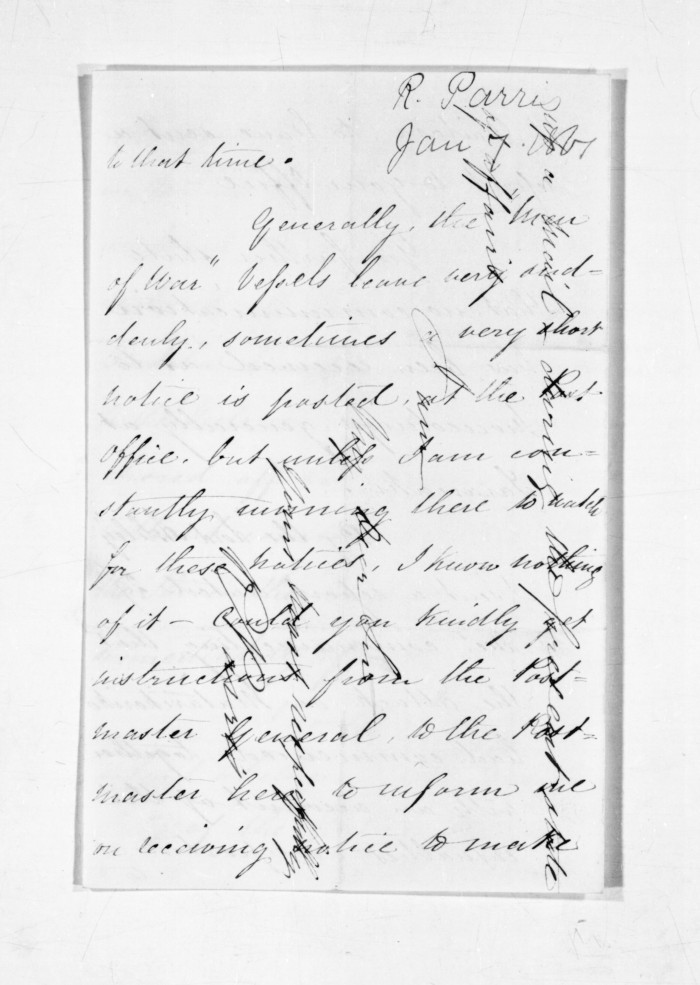 R. Parris
Jan 7. 1861
to that time.
Generally, the "Men
of War" Vessels leave very sud-
denly, sometimes a very short
notice is posted, at the Post
office. but unless I am con-
stantly running there to watch
for these notices, I know nothing
of it - Could you kindly get
instructions from the Post=
master General, to the Post=
master here to inform me
on receiving notice to make
up a mail during the present state
of affairs
I am
Yours most respectfully
R Parris